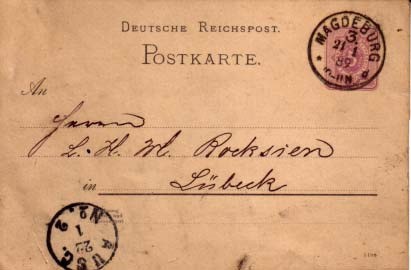 DEUTSCHE REICHSPOST.
POSTKARTE.
MAGDEBURG
3
21 1
89
An
Herrn
L. H. W. Rocksien
in Lübeck
AUSG.
No. 2
22
1